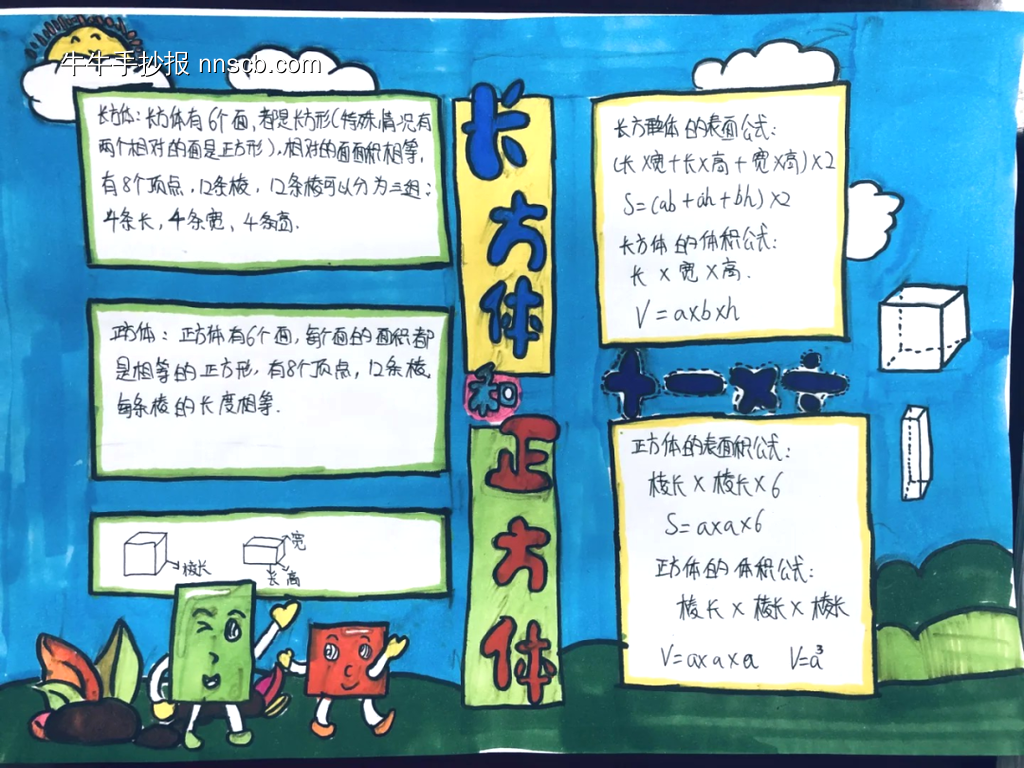 牛牛手抄报 nnscb.com
长方体：长方体有6个面，都是长方形（特殊情况有
两个相对的面是正方形），相对的面面积相等，
有8个顶点，12条棱，12条棱可以分为三组：
4条长，4条宽、4条高.
正方体：正方体有6个面，每个面的面积都
是相等的正方形，有8个顶点，12条棱，
每条棱的长度相等.
棱长
宽
长 高
长方体
和
正方体
长方体的表面公式：
(长×宽+长×高+宽×高)×2
S=(ab+ah+bh)×2
长方体的体积公式：
长×宽×高.
V=a×b×h
+－×÷
正方体的表面积公式：
棱长×棱长×6
S=a×a×6
正方体的体积公式：
棱长×棱长×棱长
V=a×a×a V=a³